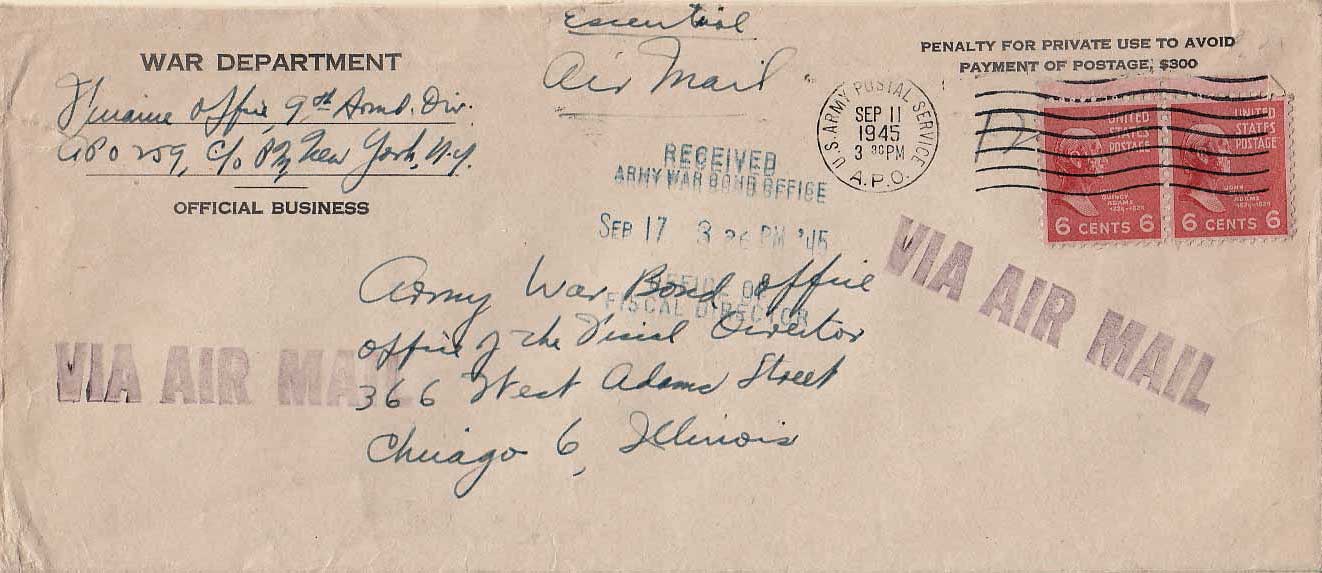 Essential
Air Mail
WAR DEPARTMENT
Finance Office, 9th Armd. Div.
APO 259, c/o PM, New York, N.Y.
OFFICIAL BUSINESS
PENALTY FOR PRIVATE USE TO AVOID
PAYMENT OF POSTAGE, $300
U.S. ARMY POSTAL SERVICE
SEP 11
1945
3 30 PM
A.P.O.
12
UNITED
STATES
POSTAGE
JOHN
QUINCY
ADAMS
1825-1829
6 CENTS 6
UNITED
STATES
POSTAGE
JOHN
QUINCY
ADAMS
1825-1829
6 CENTS 6
RECEIVED
ARMY WAR BOND OFFICE
SEP 17 3 26 PM '45
OFFICE OF
FISCAL DIRECTOR
VIA AIR MAIL
VIA AIR MAIL
Army War Bond Office
Office of the Fiscal Director
366 West Adams Street
Chicago 6, Illinois